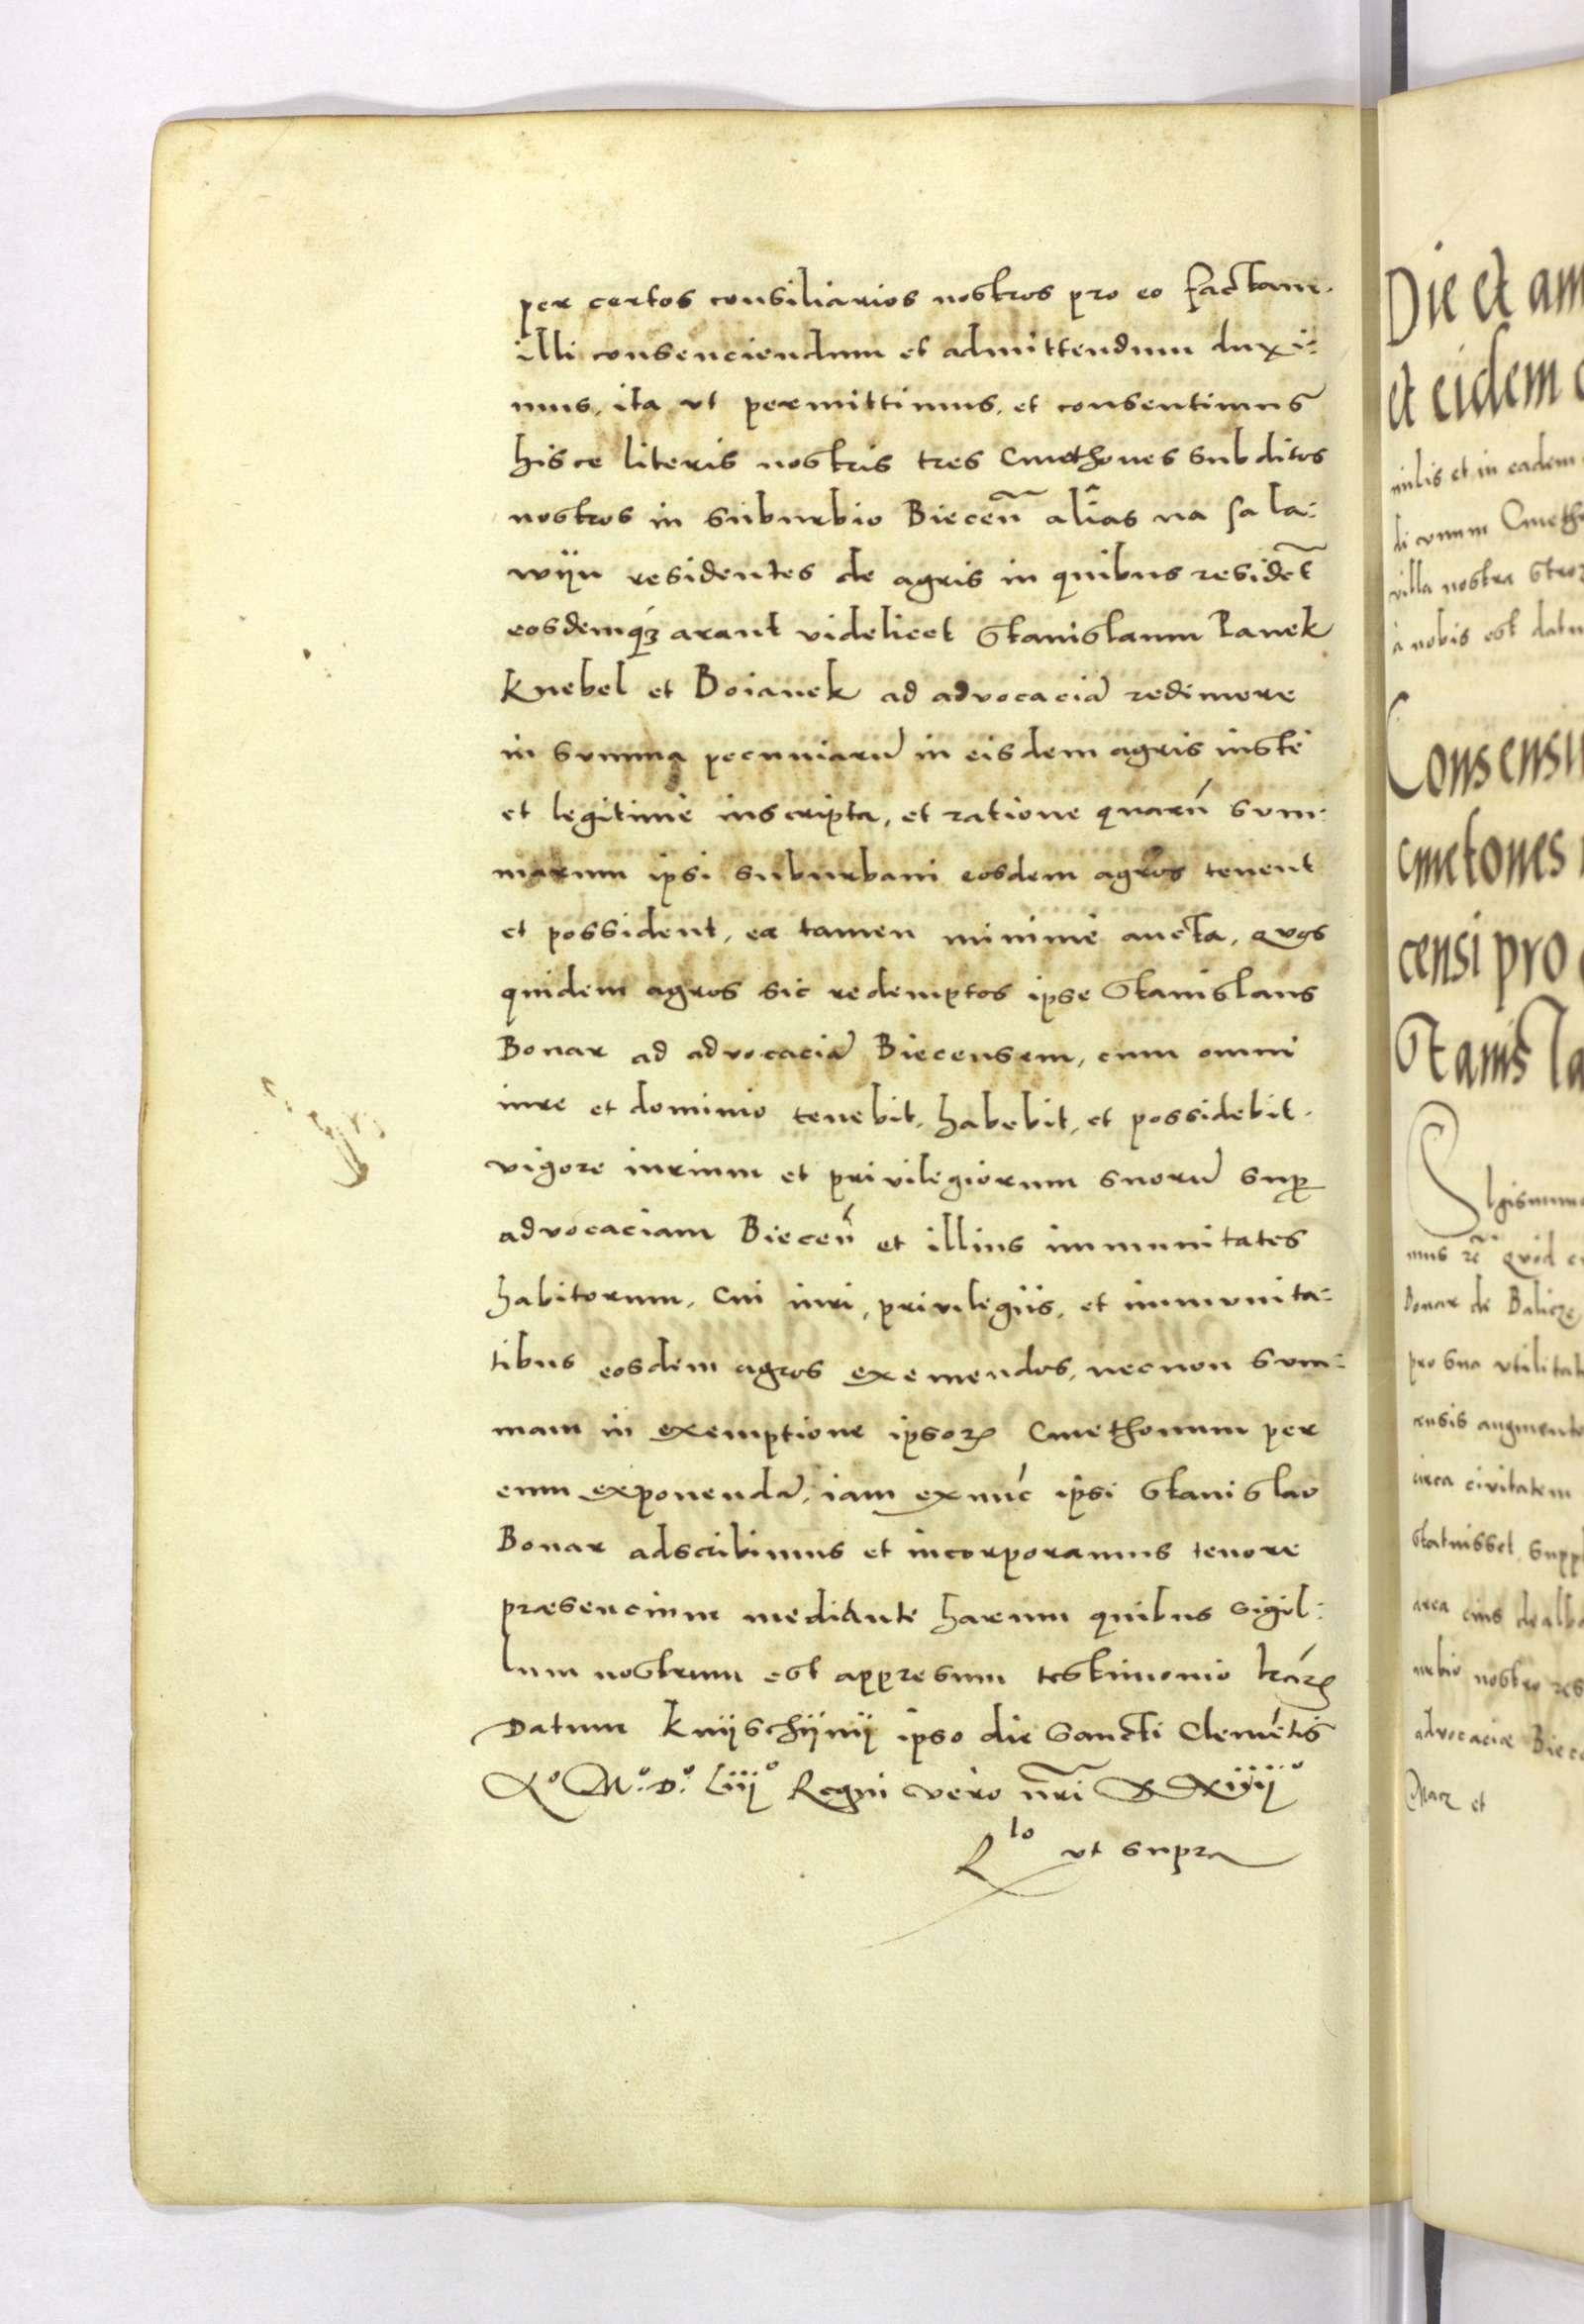 per certos consiliarios nostros pro eo factam.
illi consenciendum et admittendum duxi:
mus, ita vt permittimus, et consentimus
hisce literis nostris tres Cmethones subditos
nostros in suburbio Biecen̄ alias na sala:
wiju residentes de agris in quibus residēt
eosdemq́ꝫ arant videlicet Stanislaum Panek
Knebel et Boianek ad advocaciā redimere
in summa pecuniarū in eisdem agris iustè
et legitimè inscripta, et ratione quarū sum:
marum ipsi suburbani eosdem agros tenent
et possident, ea tamen minimè aucta, quos
quidem agros sic redemptos ipse Stanislaus
Bonar ad advocaciā Biecensem, cum omni
iure et dominio tenebit, habebit, et possidebit.
vigore iurium et privilegiorum suorū sup̱
advocaciam Biecen̄ et illius immunitates
habitorum, Cui iuri, privilegiis, et immunita:
tibus eosdem agros exemendos, necnon sum:
mam in exemptione ipsoꝝ Cmethonum per
eum exponendā, iam exnūc ipsi Stanislao
Bonar adscribimus et incorporamus tenore
præsencium mediante harum quibus sigil:
lum nostrum est appresum testimonio lr̄aꝝ
Datum Knijschijnij ipso die Sancti Clemētis
Aº Mº. Dº. Liijº Regni vero nr̄i XXiiijº
Rlo vt supra
Die et am
et eidem
milis et in eadem
di vnum Cmeth
villa nostra Stroz
à nobis est datu
Consensu
cmetones
censi pro
Stanisla
Sigismun
mus rc̄ Quod
Bonar de Balicze
pro sua vtilitat
censis augmento
circa civitatem
statuisset, supp
area eius de alb
urbio nostro res
advocaciæ Biec
Mar et